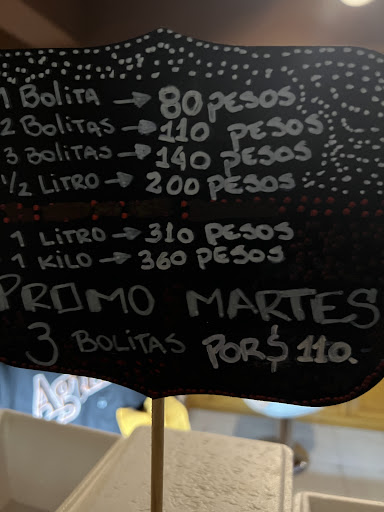 1 BOLITA → 80 PESOS
2 BOLITAS → 110 PESOS
3 BOLITAS → 140 PESOS
1/2 LITRO → 200 PESOS
1 LITRO → 310 PESOS
1 KILO → 360 PESOS
PROMO MARTES
3 BOLITAS POR $ 110